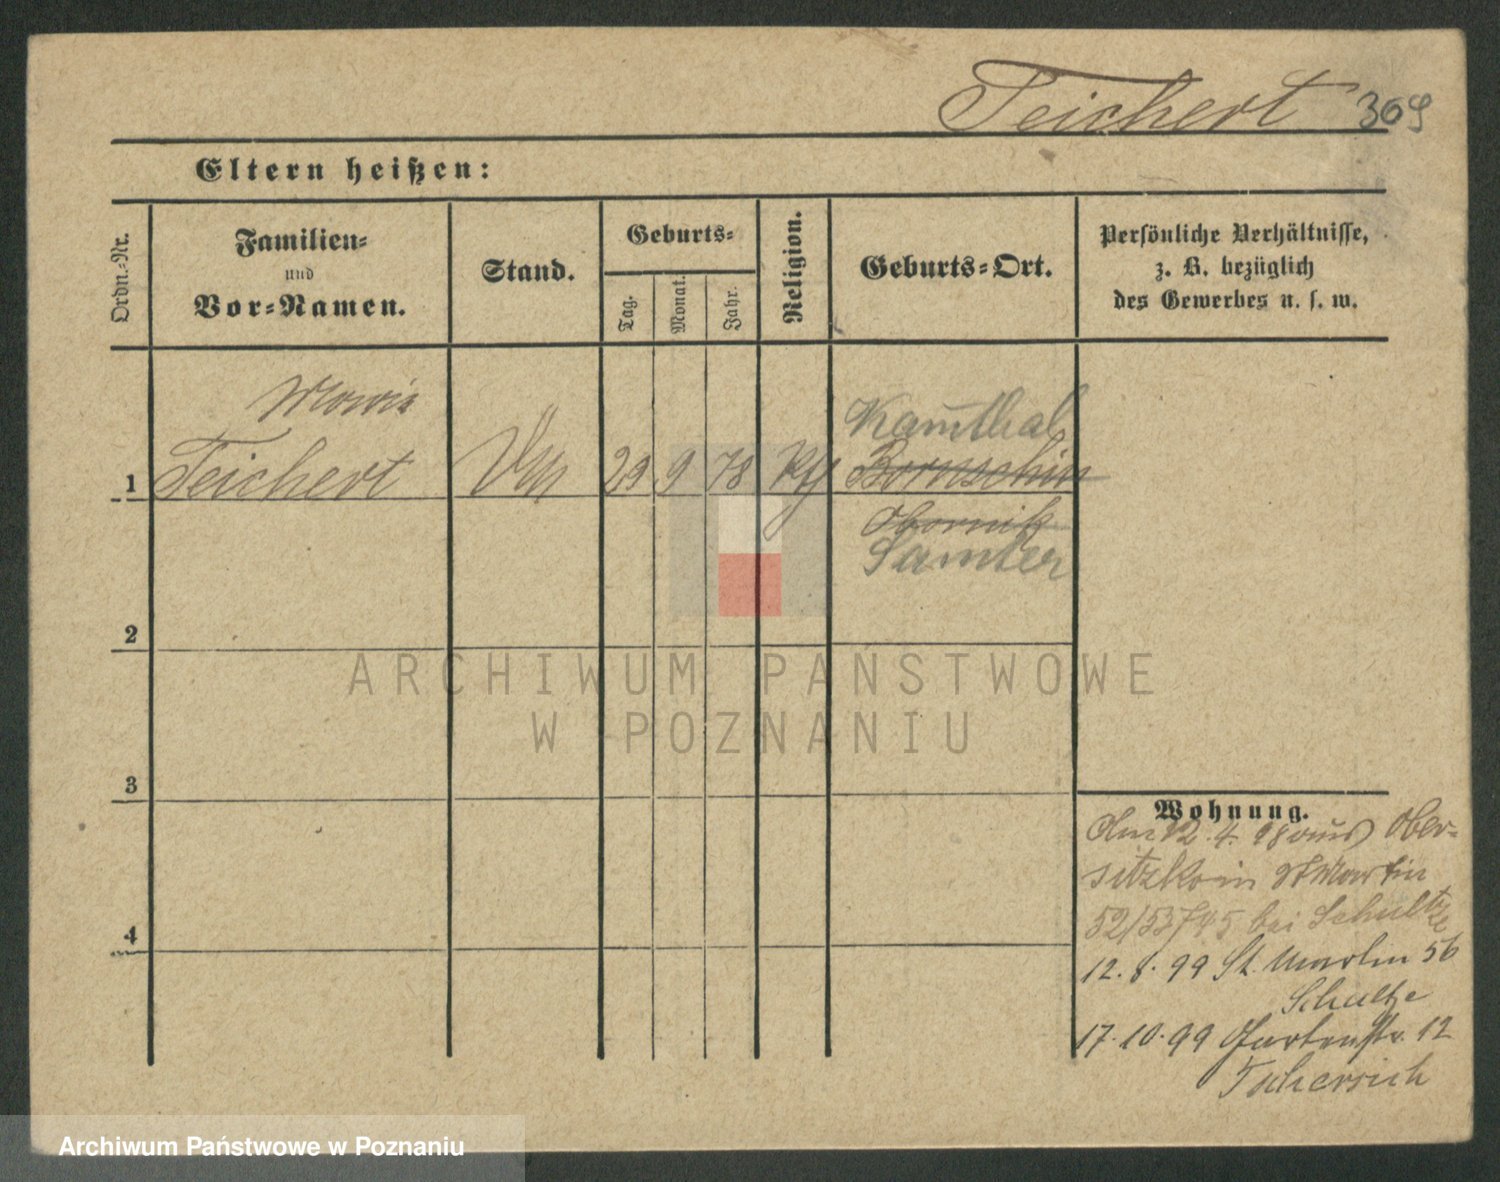 Teichert 369
Eltern heißen:
Ordn.-Nr.
Familien-
und
Vor-Namen.
Stand.
Geburts-
Tag.
Monat.
Jahr.
Religion.
Geburts-Ort.
Persönliche Verhältnisse,
z. B. bezüglich
des Gewerbes u. s. w.
Maria
Kamthal
1 Teichert 29 9 78 Kth Bornschin
Obornik
Samter
2
3
4
Wohnung.
Am 12.4.98 aus Ober-
sitzko in St Martin
52/53 bei Schultze
12.8.99 St. Martin 56
Schultze
17.10.99 Gartenstr. 12
ARCHIWUM PAŃSTWOWE
W POZNANIU
Archiwum Państwowe w Poznaniu